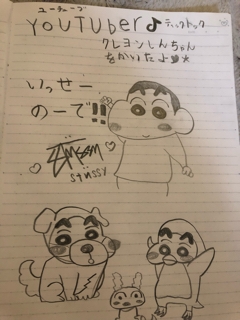 ユーチューブ
YOUTUber♪ティックトック
クレヨンしんちゃん
をかいたよ♥★
いっせー
のーで!!
Stüssy
STÜSSY